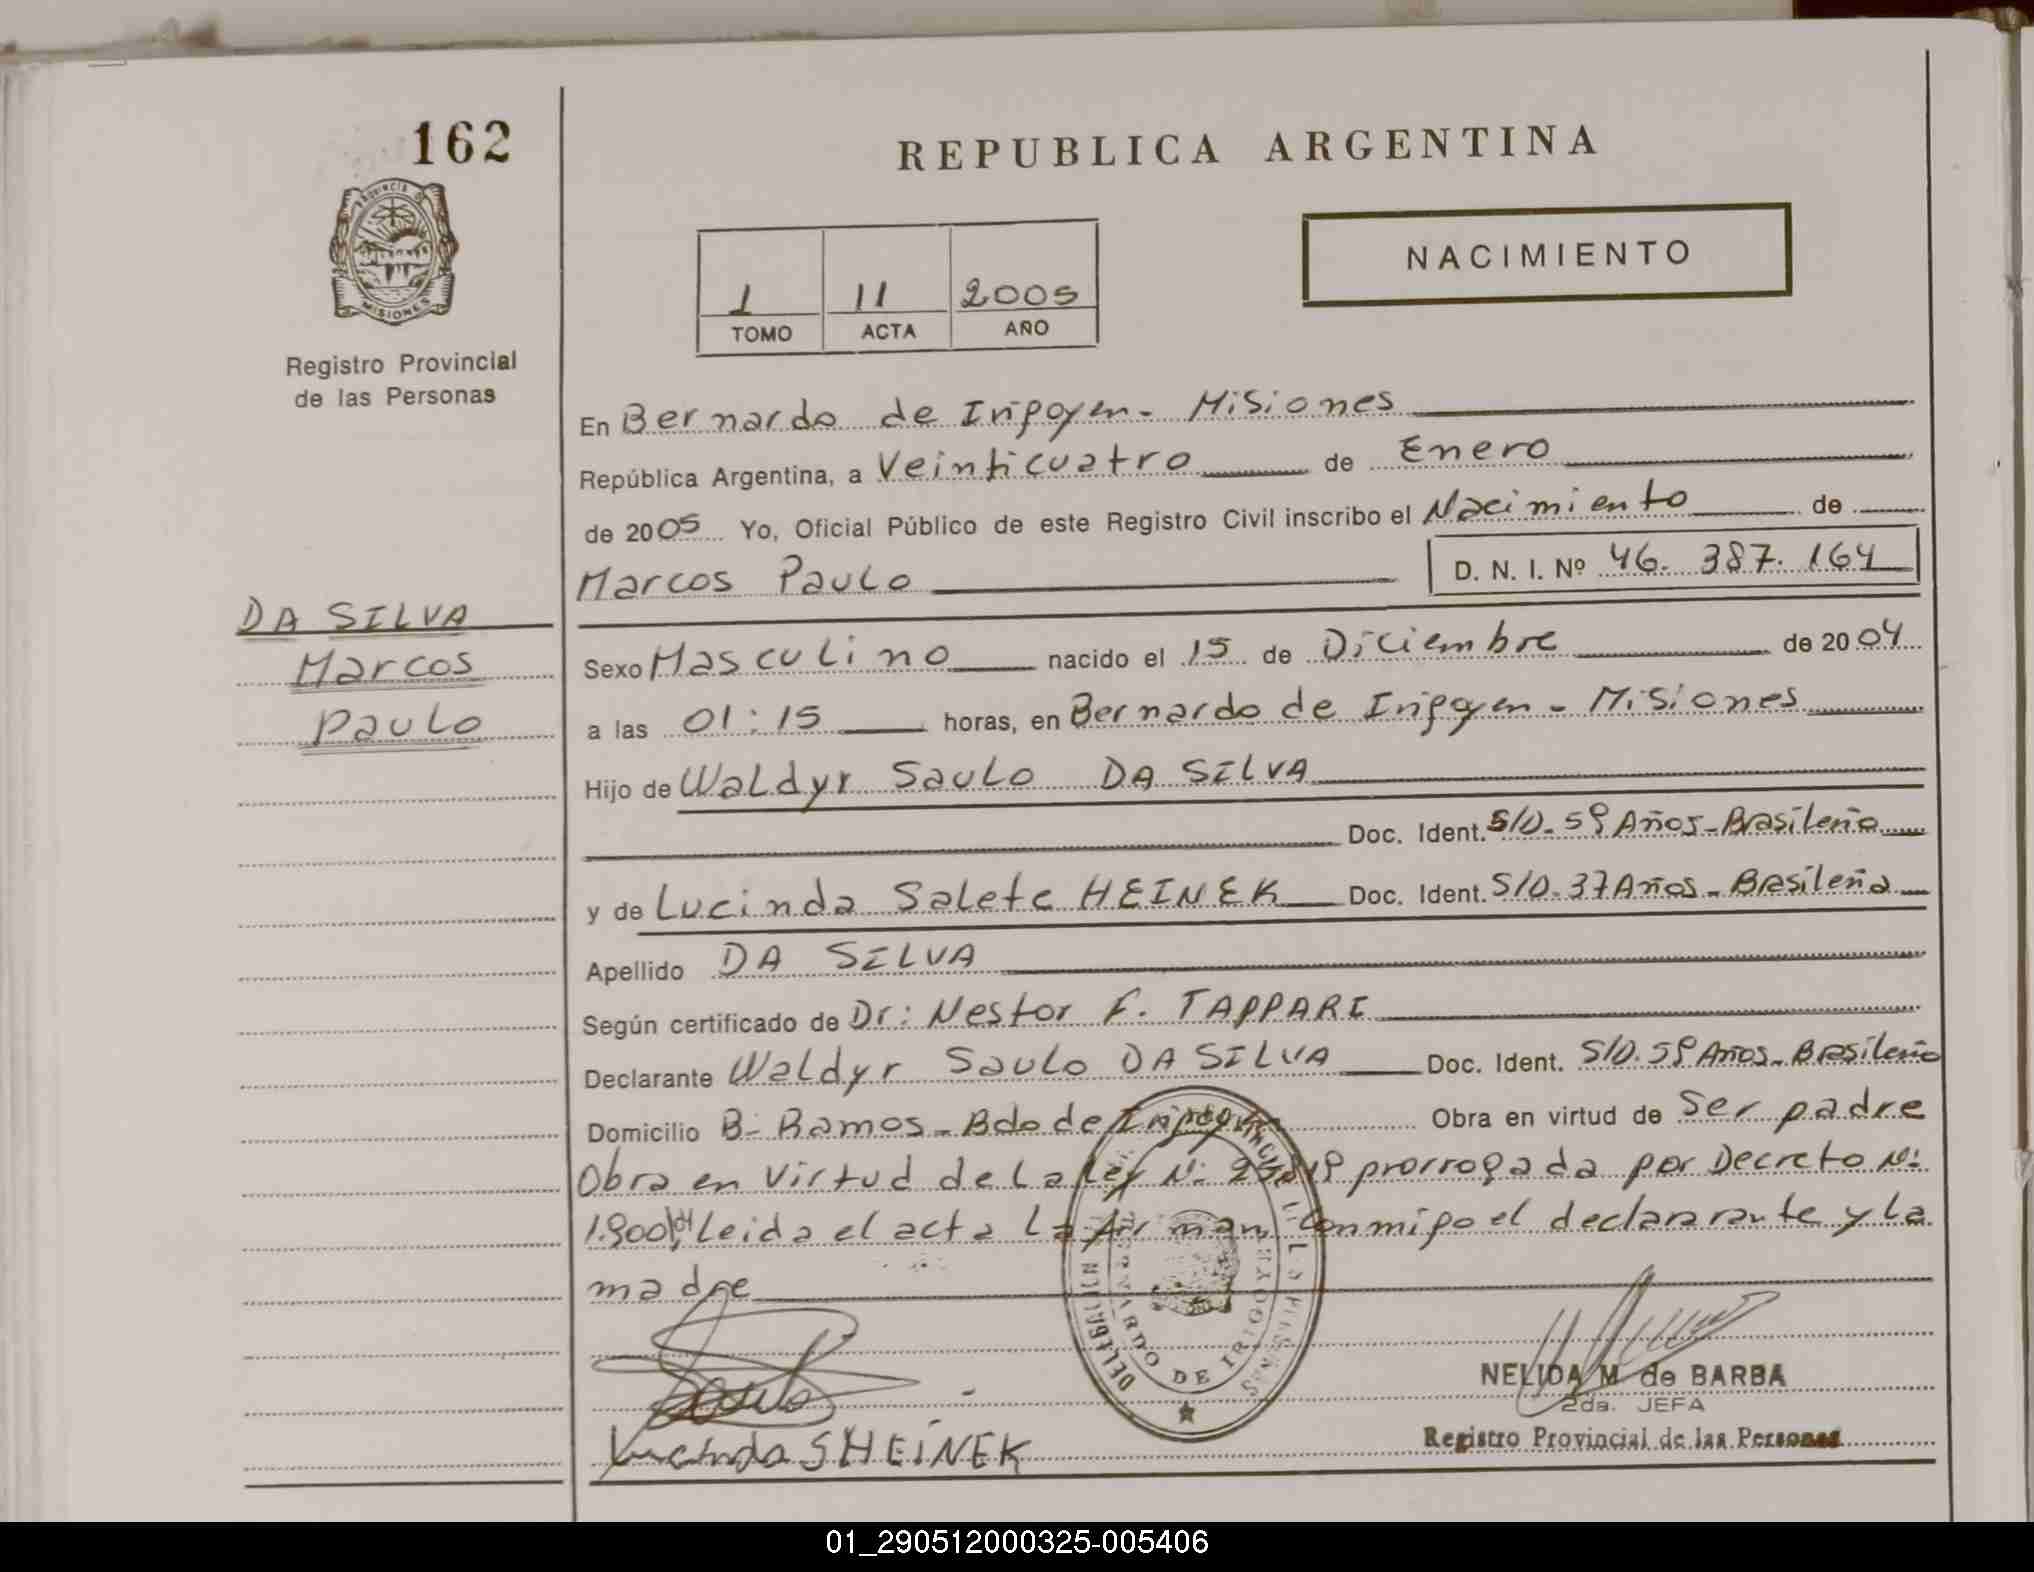 162
REPUBLICA ARGENTINA
PROVINCIA DE
MISIONES
Registro Provincial
de las Personas
NACIMIENTO
1 11 2005
TOMO ACTA AÑO
En Bernardo de Irigoyen - Misiones
República Argentina, a Veinticuatro de Enero
de 2005 Yo, Oficial Público de este Registro Civil inscribo el Nacimiento de
Marcos Paulo D. N. I. Nº 46. 387. 164
DA SILVA
Marcos
Paulo
Sexo Masculino nacido el 15 de Diciembre de 2004
a las 01:15 horas, en Bernardo de Irigoyen - Misiones
Hijo de Waldyr Saulo DA SILVA
Doc. Ident. S/D. 59 Años - Brasileño
y de Lucinda Salete HEINEK Doc. Ident. S/D. 37 Años - Brasileña
Apellido DA SILVA
Según certificado de Dr: Nestor F. TAPPARI
Declarante Waldyr Saulo DA SILVA Doc. Ident. S/D. 59 Años - Brasileño
Domicilio B: Ramos - Bdo de Irigoyen Obra en virtud de Ser padre
Obra en Virtud de La Ley N: prorrogada por Decreto N:
Leida el acta La firman Conmigo el declararante y La
madre
BERNARDO DE IRIGOYEN
Saulo
Lucinda S HEINEK
NELIDA M. de BARBA
2da. JEFA
Registro Provincial de las Personas
01_290512000325-005406